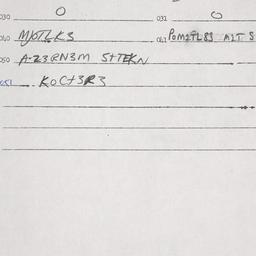 030 O 031 O
040 MJOTLKS 041 POMITL83 AIT S
050 A-Z3RN3M STTEKN
051 KOCT3R3